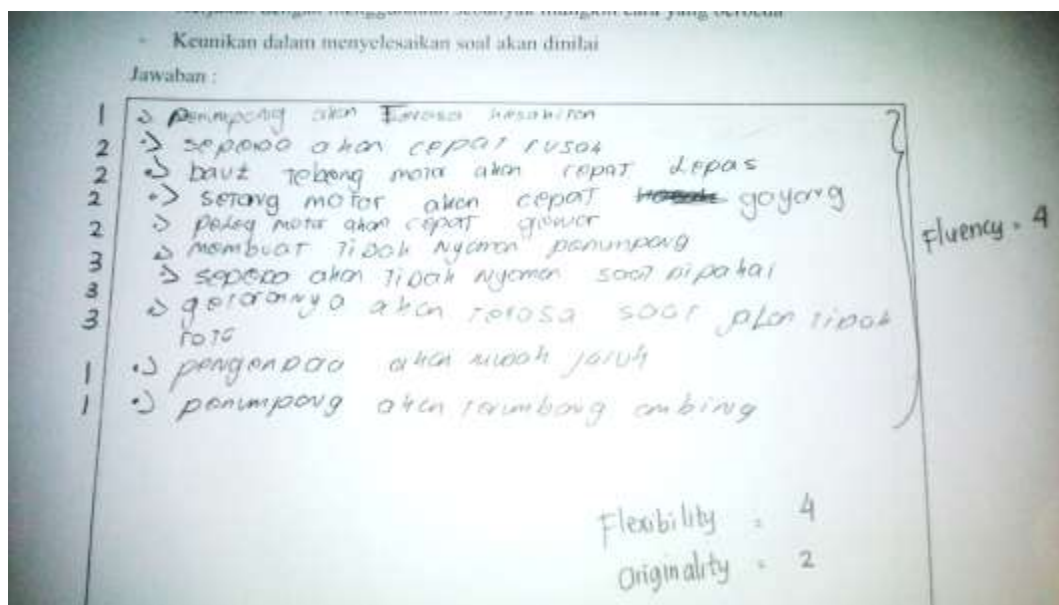 - Keunikan dalam menyelesaikan soal akan dinilai
Jawaban :
1 penumpang akan terasa kesakitan
2 sepeda akan cepat rusak
2 baut tebeng motor akan cepat lepas
2 setang motor akan cepat goyang
2 peleg motor akan cepat gower
3 membuat tidak nyaman penumpang
3 sepeda akan tidak nyaman saat dipakai
3 getarannya akan terasa saat jalan tidak
rata
1 pengendara akan mudah jatuh
1 penumpang akan terumbang ambing
Fluency = 4
Flexibility = 4
Originality = 2